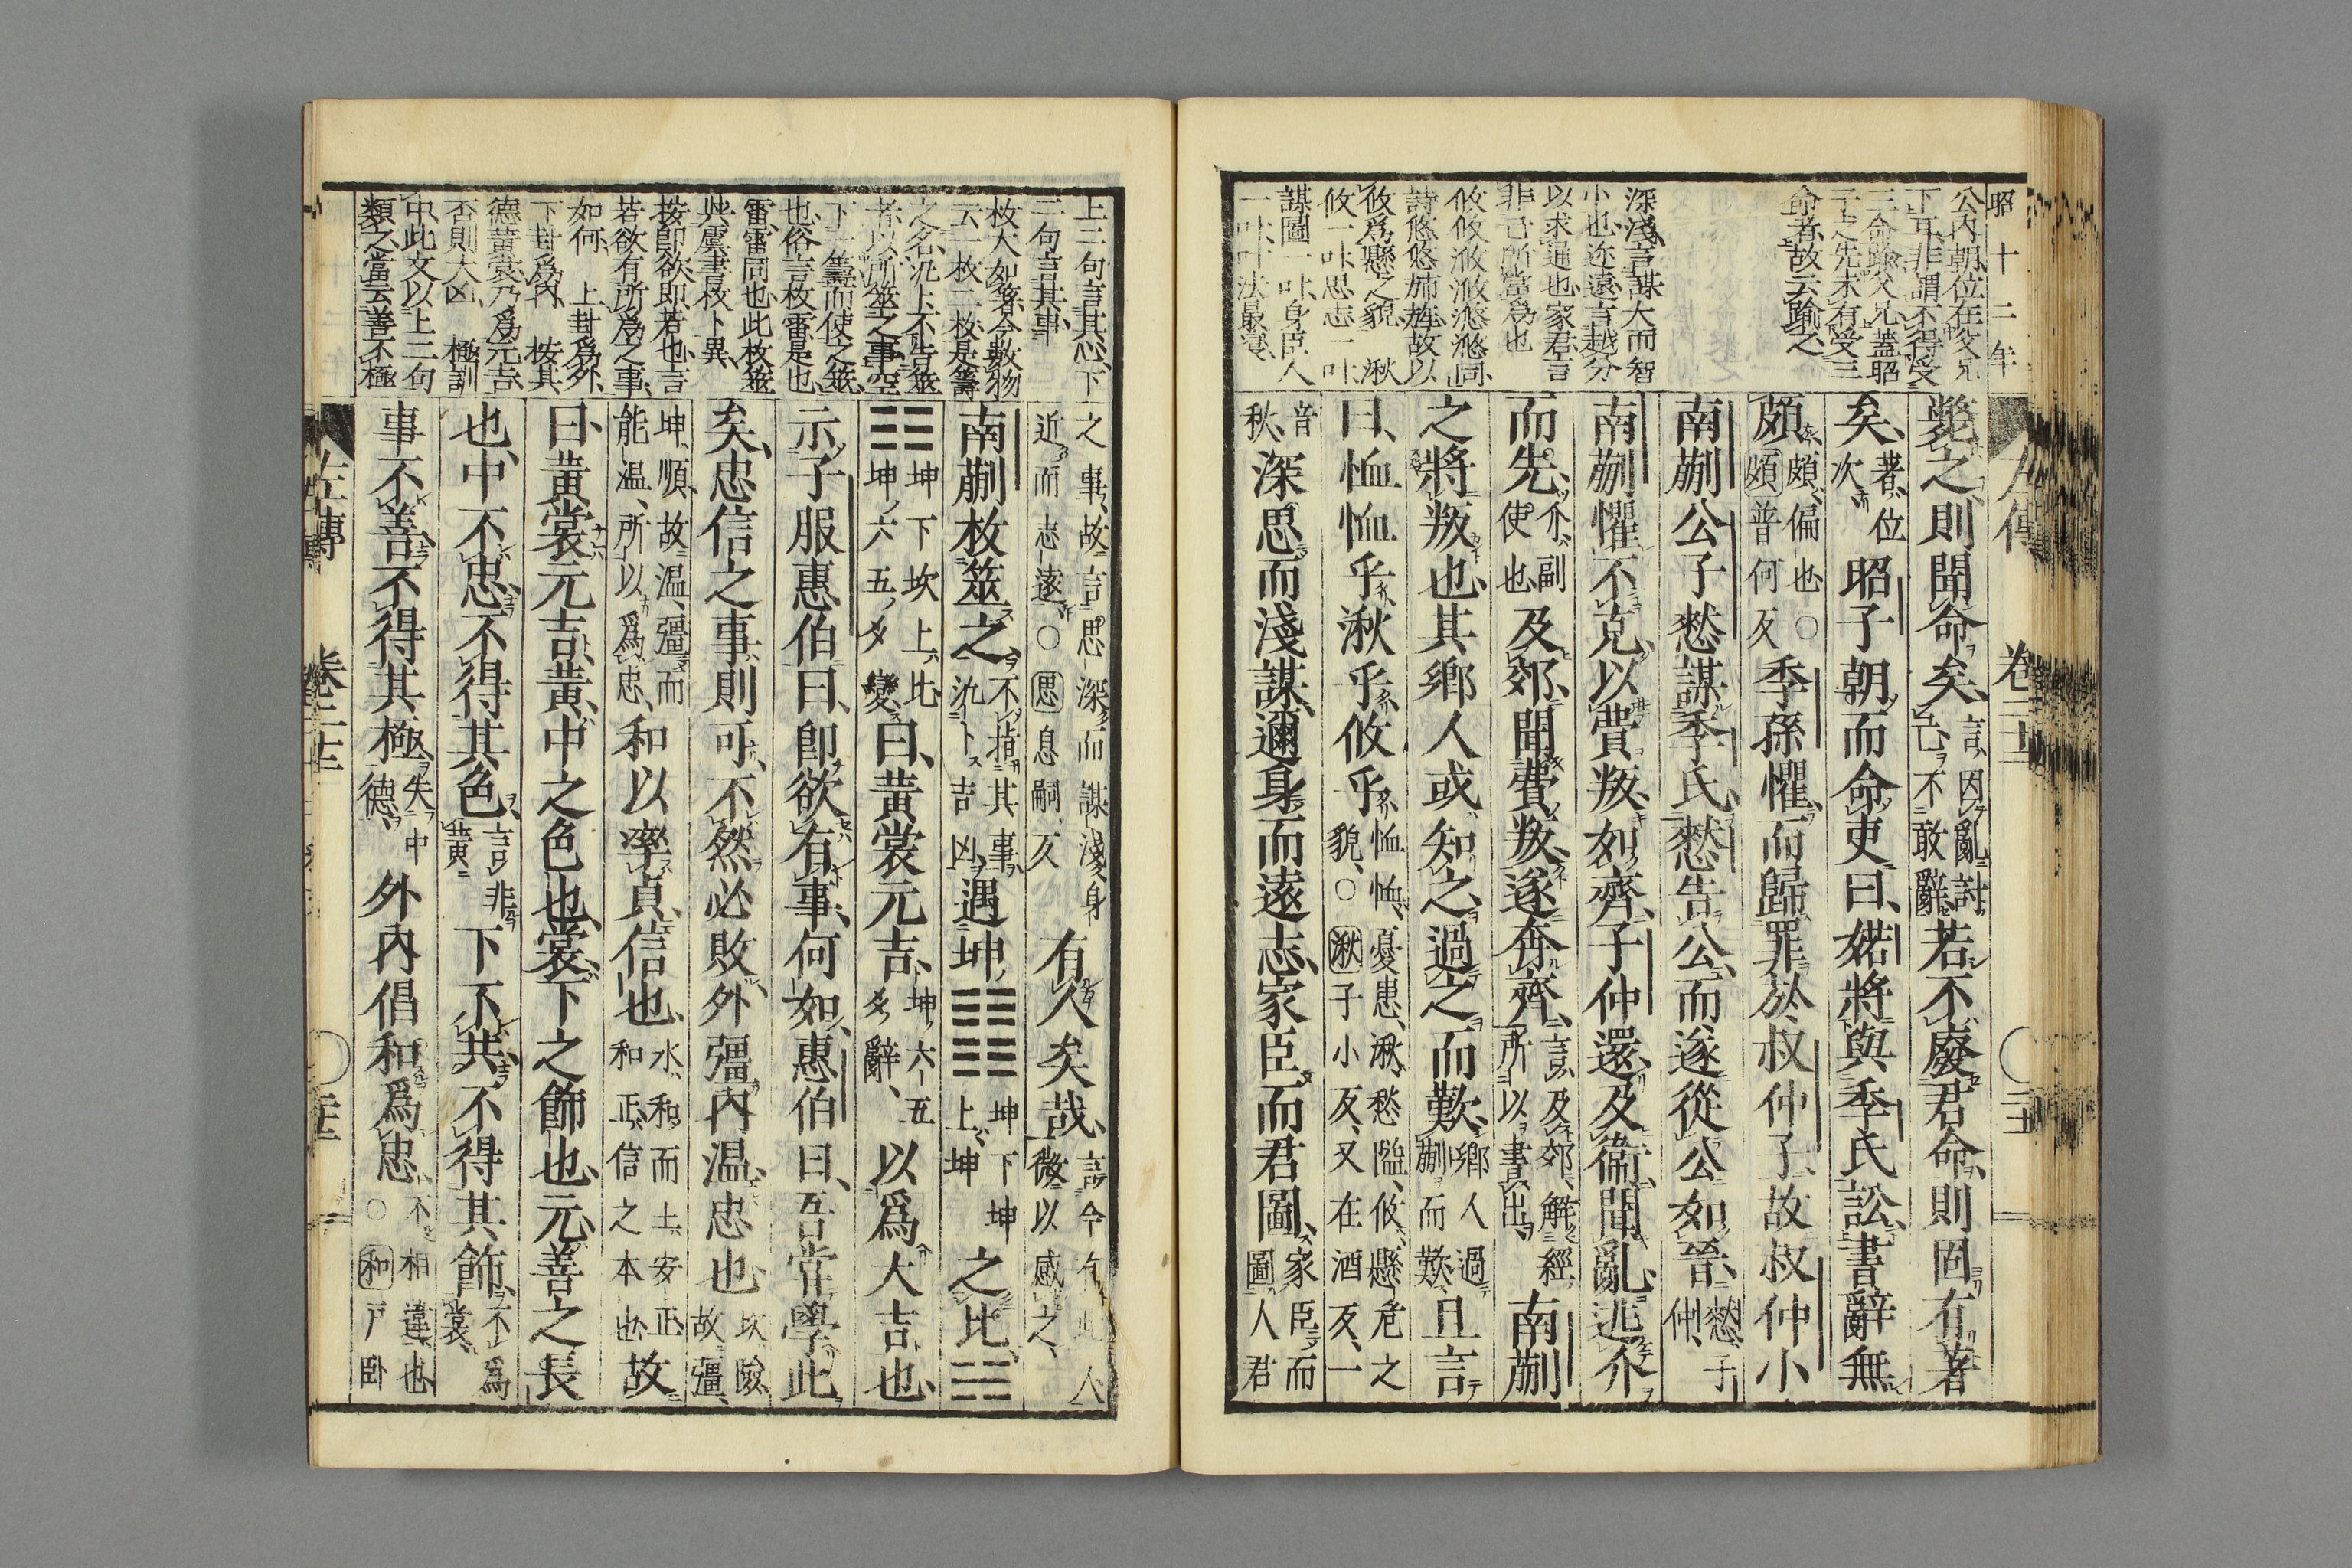 昭十二年
公内朝位在父兄
下耳非謂不得受
三命踰父兄蓋昭
子之先未有受三
命者故云踰之
深淺言謀大而智
小也迩遠言越分
以求逼也家君言
非己所當爲也
攸攸浟浟悠悠同
詩悠悠旆旌故以
攸爲懸之貌 湫
攸一叶思志一叶
謀圖一叶身臣人
一叶叶法最寛
左傳 卷二十二
斃之則聞命矣言因亂討己不敢辭若不廢君命則固有著
矣著位次昭子朝而命吏曰婼將與季氏訟書辭無
頗頗偏也○頗普何反季孫懼而歸罪於叔仲子故叔仲小
南蒯公子憖謀季氏憖告公而遂從公如晉憖子仲
南蒯懼不克以費叛如齊子仲還及衞聞亂逃介
而先介副使也及郊聞費叛遂奔齊言及郊解經所以書出南蒯
之將叛也其鄉人或知之過之而歎鄉人過蒯而歎且言
曰恤恤乎湫乎攸乎恤恤憂患湫愁隘攸懸危之貌○湫子小反又在酒反一
音秋深思而淺謀邇身而遠志家臣而君圖家臣而圖人君
上二句言其志下
二句言其事
枚大如箸今數物
云一枚二枚是籌
之名汎卜不告筮
者以所筮之事空
下一籌而使之筮
也俗言枚雷是也
雷雷同也此枚筮
與虞書枚卜異
按卽欲即若也言
若欲有所爲之事
如何 上卦爲外
下卦爲内 按其
德黄裳乃爲元吉
否則大凶 極訓
中此文以上二句
類之當云善不極
之事故言思深而謀淺身近而志遠○思息嗣反有人矣哉言今有此人微以感之
南蒯枚筮之不指其事汎卜吉凶遇坤䷁坤下坤上坤之比䷇
坤下坎上比坤六五爻變曰黄裳元吉坤六五爻辭以爲大吉也
示子服惠伯曰卽欲有事何如惠伯曰吾嘗學此
矣忠信之事則可不然必敗外彊内温忠也坎險故彊
坤順故温彊而能温所以爲忠和以率貞信也水和而土安正和正信之本也故
曰黄裳元吉黄中之色也裳下之飾也元善之長
也中不忠不得其色言非黄下不共不得其飾不爲裳
事不善不得其極失中德外内倡和爲忠不相違也○和戸卧
左傳 卷二十二